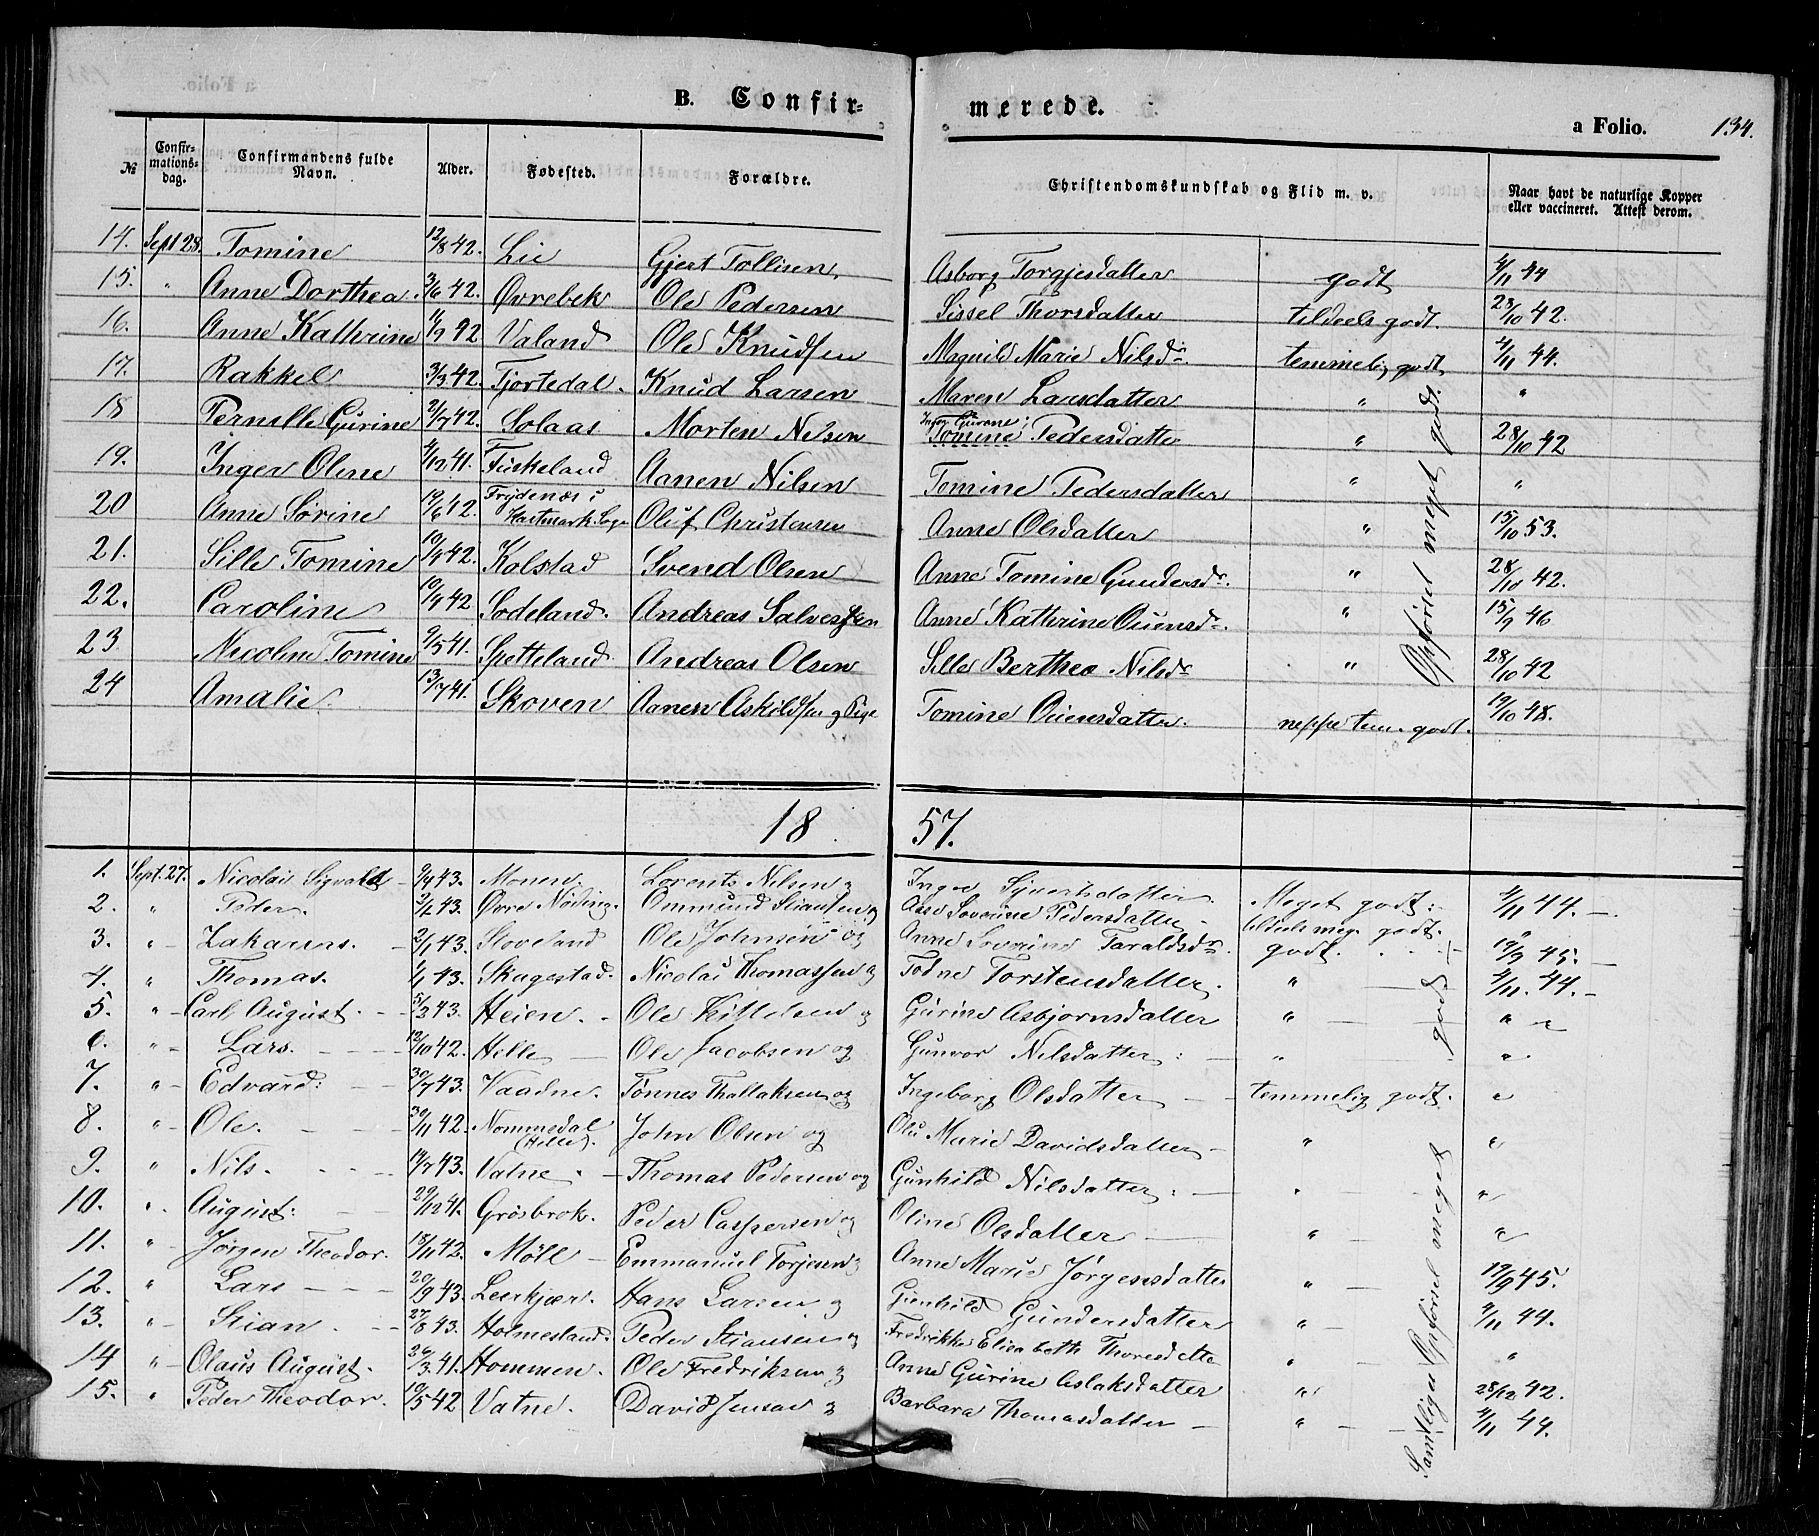 B. Confir=
merede.
a Folio. 134.
№ Confir-mations-dag. Confirmandens fulde Navn. Alder. Fødested. Forældre. Christendomskundskab og Flid m. v. Naar havt de naturlige Kopper eller vaccineret. Attest derom.
14. Sept 28. Tomine 12/8 42. Lie Gjert Tollisen, Asborg Torgjesdatter godt 4/11 44
15. " Anne Dorthea. 3/6 42. Øvrebek Ole Pedersen Sissel Thorsdatter tildeels godt. 23/10 42.
16. Anne Kathrine 11/9 42 Valand Ole Knudsen Magnild Marie Nilsdr. temmelig godt 4/11 44.
17. Rakkel 3/3 42. Fjortedal. Knud Larsen Maren Larsdatter " "
18 Pernille Gurine 2/7 42. Solaas Morten Nilsen Inger Gurine Tomine Pedersdatter " 28/10 42
19. Inger Oline 4/12 41. Fuskeland Aanen Nilsen Tomine Pedersdatter " "
20 Anne Sørine 19/6 42. Frydenæs i Hartmark Sogn Oluf Christensen Anne Olsdatter " 15/10 53.
21. Sille Tomine 10/9 42. Kolstad Svend Olsen Anne Tomine Gundersdr. " 28/10 42.
22. Caroline 10/9 42 Sodeland. Andreas Salvesen Anne Kathrine Ouensdr. " 15/9 46
23 Nicoline Tomine 9/5 41. Spetteland. Andreas Olsen Sille Berthea Nilsdr " 28/10 42
24 Amalie. 13/7 41. Skoven Aanen Askildsen og Pige Tomine Ouensdatter. neppe tem. godt. 19/10 48.
Opførsel meget godt.
18 57.
1. Sept. 27. Nicolai Sigvald 9/9 43. Monen. Lorents Nilsen og Inger Sjurtsdatter. Meget godt: 4/11 44.
2. " Peder. 3/2 43. Øvre Nøding. Ommund Stiansen og Asse Severine Pedersdatter tildeels meg. godt.
3. " Zakarias. 2/1 43. Sloveland Ole Johnsen og Anne Severine Taraldsdr. godt. 19/9 45.
4. " Thomas. 1/1 43. Skagestad. Nicolai Thomassen og Todne Torstensdatter. " 4/11. 44.
5. " Carl August. 5/3 43. Heien. Ole Kittelsen og Gurine Asbjornsdatter " "
6. " Lars. 12/10 42. Hille Ole Jacobsen og Gunvor Nilsdatter: " "
7. " Edvard: 30/7 43. Vaadne. Tønnes Thallaksen og Ingeborg Olsdatter temmelig godt. "
8. " Ole. 30/11 42. Nommedal (Hille). John Olsen og Olu Marie Davidsdatter " "
9. " Nils. 14/7 43. Vatne. Thomas Pedersen og Gunhild Nilsdatter: " "
10. " August: 29/12 41. Grøsbrok. Peder Caspersen og Oline Olsdatter " "
11. " Jørgen Theodor. 18/11 42. Møll Emmanuel Torjesen og Anne Marie Jørgensdatter " 19/9 45.
12. " Lars 20/9 43. Leerkjær. Hans Larsen og Gunhild Gundersdatter " 4/11 44.
13. " Stian. 27/8 43. Holmesland. Peder Stiansen og Fredrikke Elisabeth Thoresdatter " "
14 " Olaus August. 26/3 41. Hommen. Ole Fredriksen og Anne Gurine Aslaksdatter " 28/12 42.
15. " Peder Theodor. 10/5 42 Vatne. David Jensen og Barbara Thomasdatter " 4/11 44.
Samtliges Opførsel meget god